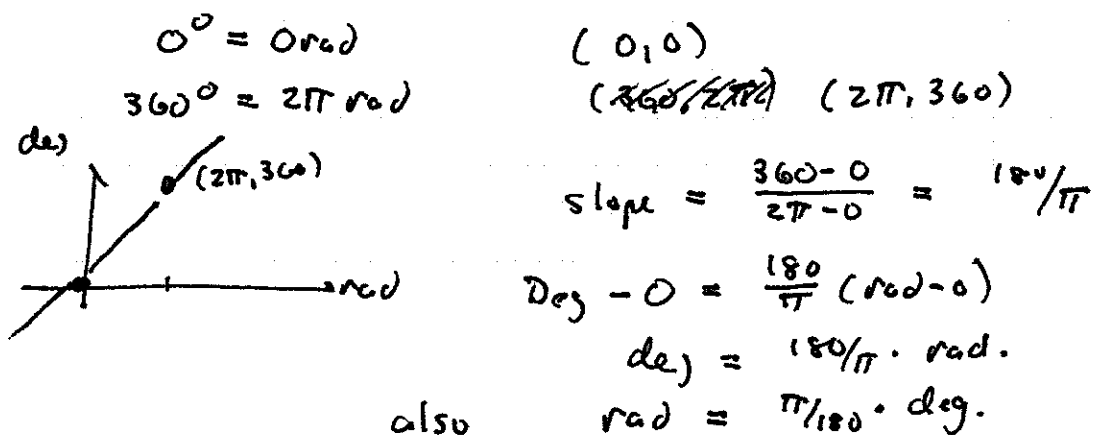 0° = 0 rad
(0,0)
360° = 2π rad
(2π, 360)
deg
(2π, 360)
slope = \frac{360-0}{2π-0} = 180/π
rad
Deg - 0 = \frac{180}{π} (rad-0)
deg = 180/π · rad.
also rad = π/180 · deg.